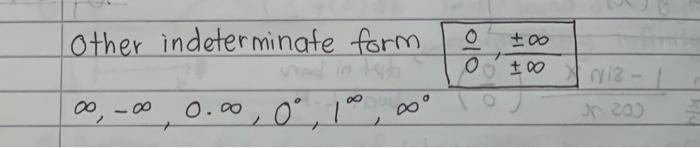 Other indeterminate form 0/0, ±∞/±∞
∞, -∞, 0.∞, 0°, 1^∞, ∞°